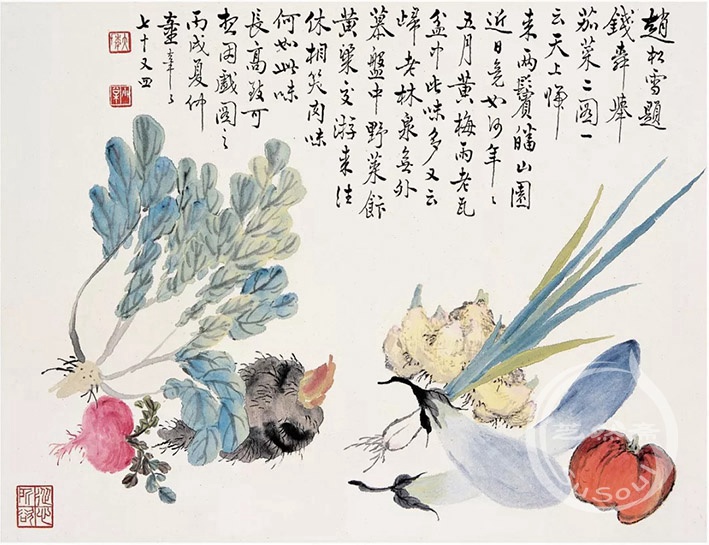 趙松雪題
錢舜舉
茄菜二圖一
云天上歸
来兩鬢皤山園
近日竟如何年〻
五月黄梅雨老瓦
盆中此味多又云
歸老林泉無外
慕盤中野菜飰
黄粱交游来往
休相笑肉味
何如此味
長高致可
想因戲圖之
丙戌夏仲
七十又四